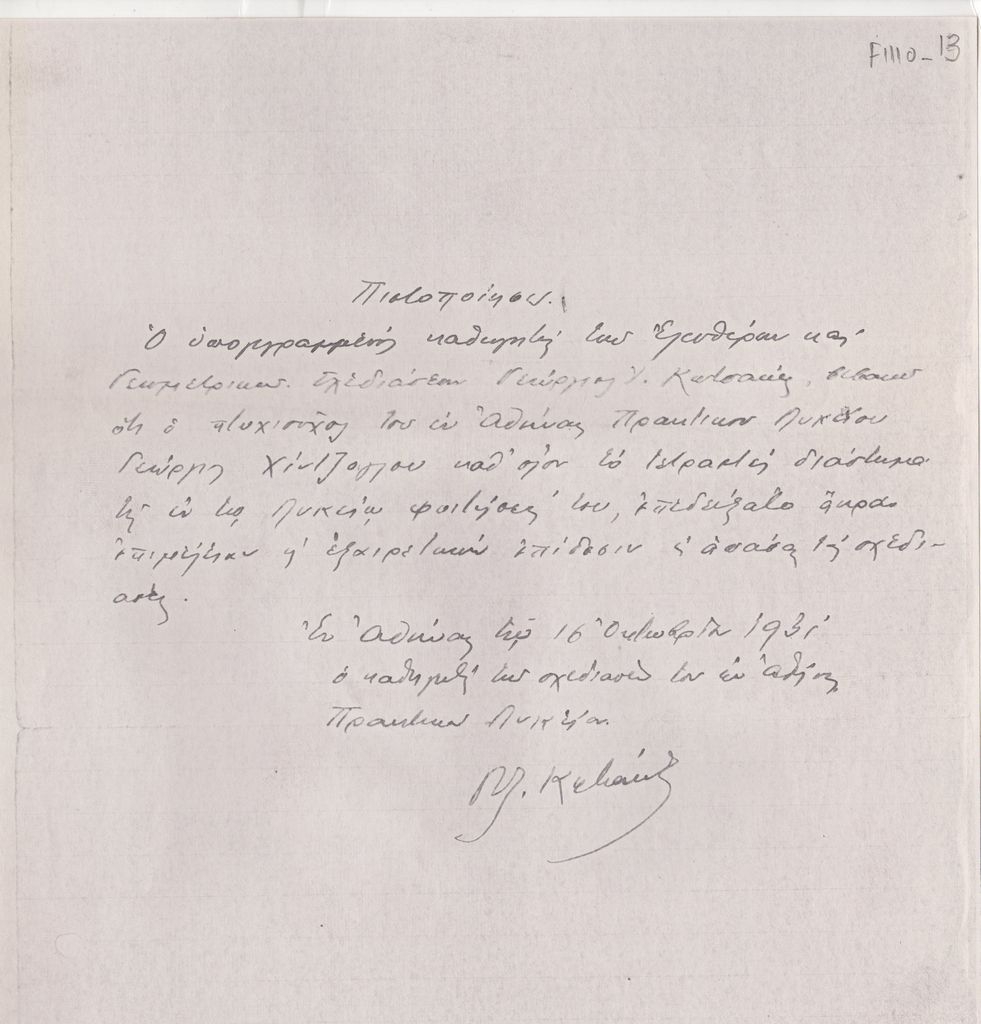 F1110-13
Πιστοποίησις.
Ὁ ὑπογεγραμμένος καθηγητὴς τῶν Ἐλευθέρων καὶ
Γεωμετρικῶν Σχεδιάσεων Γεώργιος Κωτσάκης, βεβαιῶ
ὅτι ὁ πτυχιοῦχος τοῦ ἐν Ἀθήναις Πρακτικοῦ Λυκείου
Γεώργιος Χίντζογλου καθ' ὅλον τὸ τετραετὲς διάστημα
τῆς ἐν τῷ Λυκείῳ φοιτήσεώς του, ἐπεδείξατο ἄκραν
ἐπιμέλειαν καὶ ἐξαιρετικὴν ἐπίδοσιν εἰς ἁπάσας τὰς σχεδι-
άσεις.
Ἐν Ἀθήναις τῇ 16 Ὀκτωβρίου 1931
ὁ καθηγητὴς τῶν σχεδιάσεων τοῦ ἐν Ἀθήναις
Πρακτικοῦ Λυκείου.